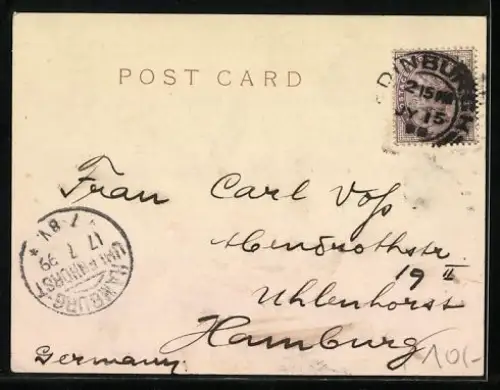 POST CARD
EDINBURGH
2 15 PM
JY 15
99
Frau Carl Voß
Heinrothstr.
19 II
Uhlenhorst
Hamburg
Germany.
HAMBURG
UHLENHORST
17 7 99
7-8 V.
*
POSTAGE
10/-